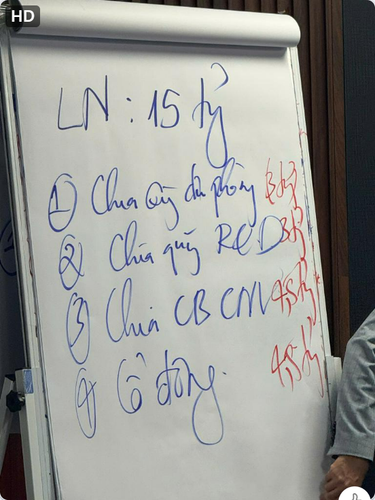 HD
LN : 15 tỷ
① Chia quỹ dự phòng 3 tỷ
② Chia quỹ R&D 3 tỷ
③ Chia CBCNV 4,5 tỷ
④ Cổ đông. 4,5 tỷ